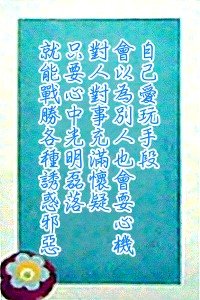 自己愛玩手段
會以為別人也會耍心機
對人對事充滿懷疑
只要心中光明磊落
就能戰勝各種誘惑邪惡